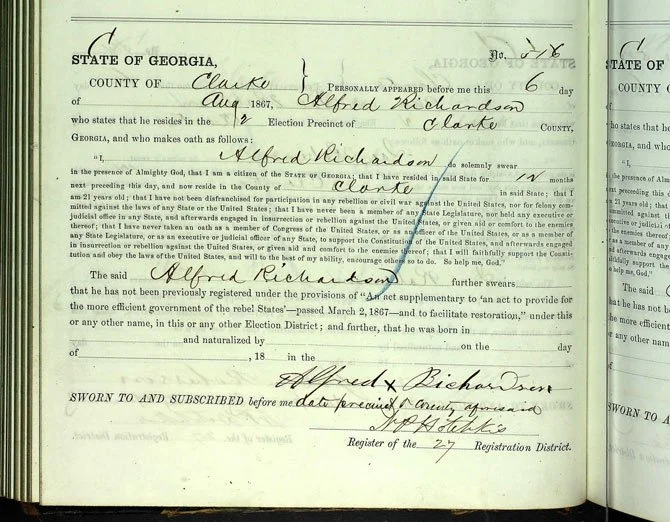 C
No. 516
STATE OF GEORGIA,
COUNTY OF Clarke } PERSONALLY APPEARED before me this 6 day
of Aug 1867, Alfred Richardson
who states that he resides in the 2 Election Precinct of Clarke COUNTY,
GEORGIA, and who makes oath as follows:
"I, Alfred Richardson do solemnly swear
in the presence of Almighty God, that I am a citizen of the STATE OF GEORGIA; that I have resided in said State for 12 months
next preceding this day, and now reside in the County of Clarke in said State; that I
am 21 years old; that I have not been disfranchised for participation in any rebellion or civil war against the United States, nor for felony com-
mitted against the laws of any State or the United States; that I have never been a member of any State Legislature, nor held any executive or
judicial office in any State, and afterwards engaged in insurrection or rebellion against the United States, or given aid or comfort to the enemies
thereof; that I have never taken an oath as a member of Congress of the United States, or as an officer of the United States, or as a member of
any State Legislature, or as an executive or judicial officer of any State, to support the Constitution of the United States, and afterwards engaged
in insurrection or rebellion against the United States, or given aid and comfort to the enemies thereof; that I will faithfully support the Consti-
tution and obey the laws of the United States, and will to the best of my ability, encourage others so to do. So help me, God."
The said Alfred Richardson further swears
that he has not been previously registered under the provisions of "An act supplementary to 'an act to provide for
the more efficient government of the rebel States'—passed March 2, 1867—and to facilitate restoration," under this
or any other name, in this or any other Election District; and further, that he was born in
and naturalized by on the day
of , 18 in the
Alfred x Richardson
SWORN TO AND SUBSCRIBED before me date precinct & county aforesaid
Register of the 27 Registration District.